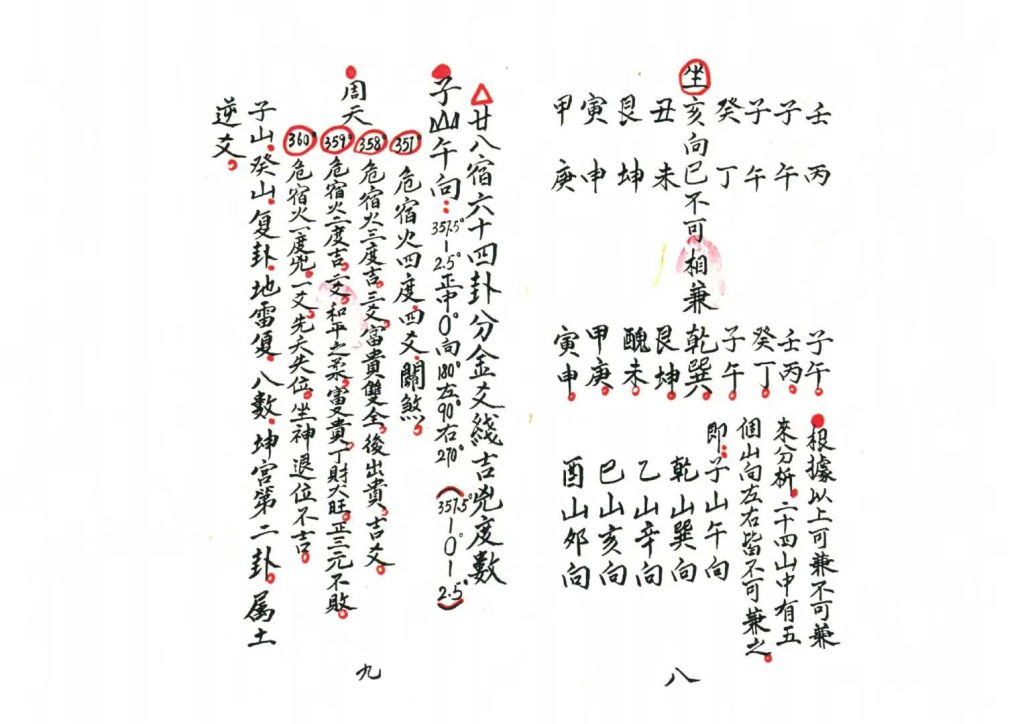 壬丙 子午。
子午 壬丙。
子午 癸丁。
癸丁 子午。
坐亥向巳不可相兼乾巽。
丑未 艮坤。
艮坤 醜未。
寅申 甲庚。
甲庚 寅申。
根據以上可兼不可兼
來分析.二十四山中有五
個山向左右皆不可兼之。
即:子山午向
乾山巽向
乙山辛向
巳山亥向
酉山夘向
八
△廿八宿六十四卦分金爻綫吉兇度數
子山午向:357.5°-2.5°正中0°向180°左90°右270°(357.5°-0°-2.5°)
357° 危宿火四度.四爻.關煞。
周天
358° 危宿火三度吉.三爻富貴雙全.後出貴.吉爻。
359° 危宿火二度吉.二爻.和平之柔.富又貴.丁財大旺.正三元不敗。
360° 危宿火一度兇.一爻先夭失位.坐神退位不吉。
子山.癸山.复卦.地雷复.八數.坤宮第二卦.属土
逆爻。
九